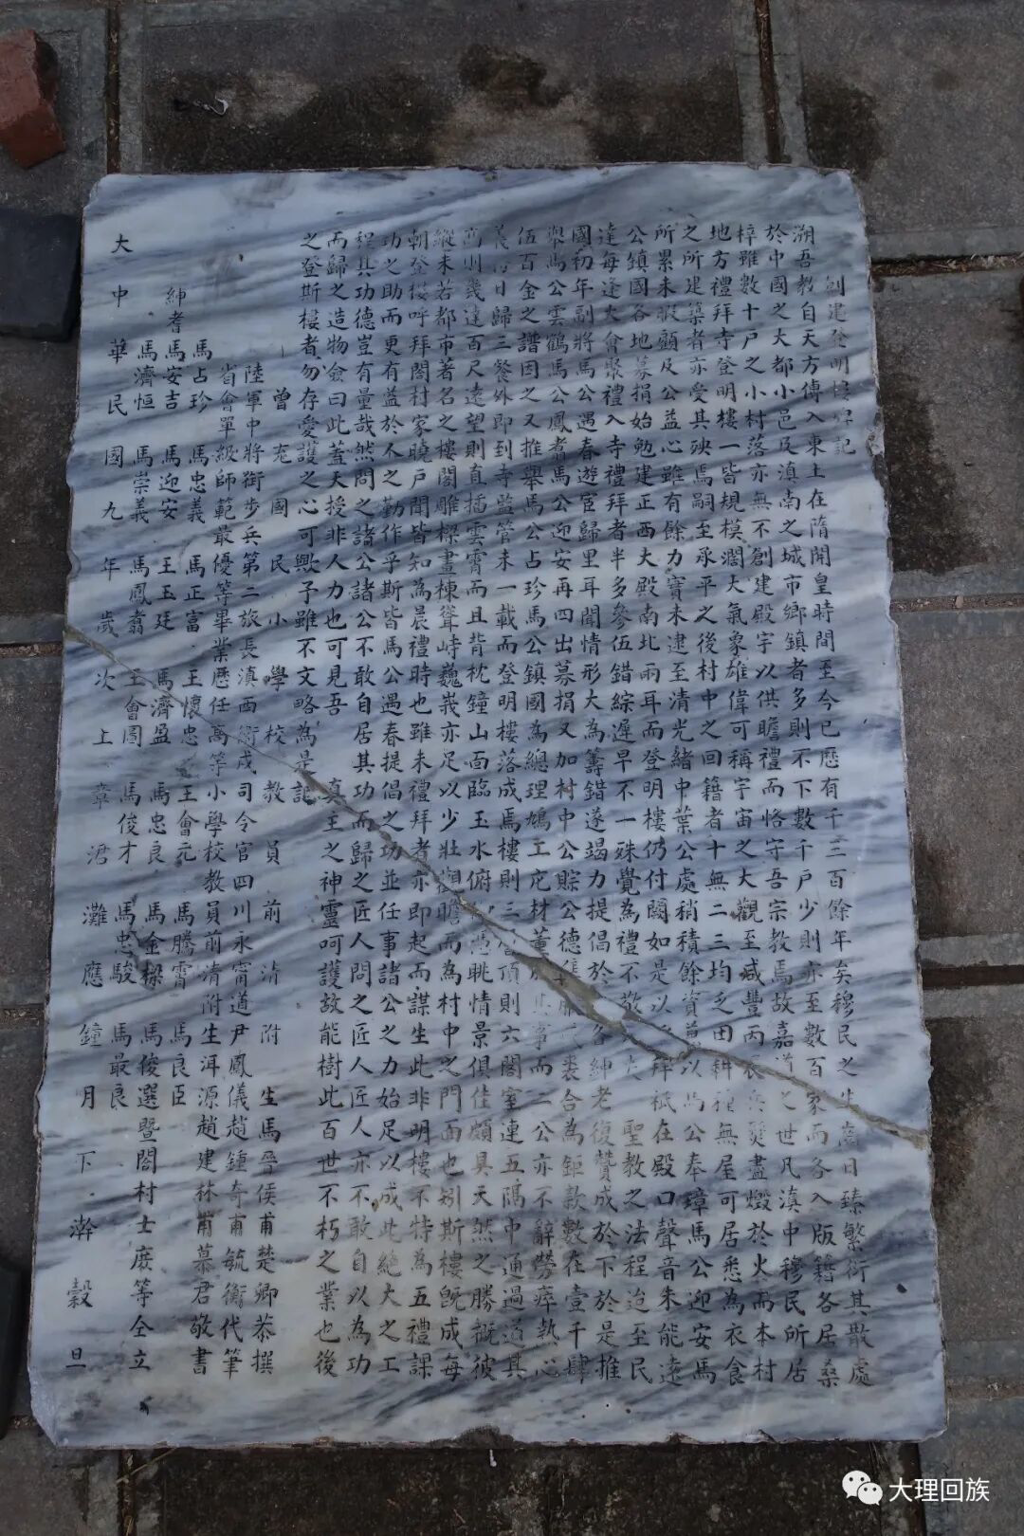 創建登明樓碑記
朔吾教自天方傳入東土在隋開皇時間至今已歷有千三百餘年矣穆民之生齒日臻繁衍其散處
於中國之大都小邑及滇南之城市鄉鎮者多則不下數千戶少則亦至數百家而各入版籍各居桑
梓雖數十戶之小村落亦無不創建殿宇以供瞻禮而恪守吾宗教焉故嘉道之世凡滇中穆民所居
地方禮拜寺登明樓一皆規模濶大氣象雄偉可稱宇宙之大觀至咸豐丙辰兵燹盡燬於火而本村
之所建築者亦受其殃焉嗣至承平之後村中之回籍者十無二三均乏田耕種無屋可居悉為衣食
所累未暇顧及公益心雖有餘力實未逮至清光緒中葉公處稍積餘資 以馬公奉璋馬公迎安馬
公鎮國各地募捐始勉建正西大殿南北兩耳而登明樓仍付闕如是以 拜祇在殿口聲音未能遠
達每逢大會聚禮入寺禮拜者半多參伍錯綜遲早不一殊覺為禮不敬 大 聖教之法程迨至民
國初年副將馬公遇春遊宦歸里耳聞情形大為籌錯遂竭力提倡於 各紳老復贊成於下於是推
舉馬公雲鶴馬公鳳耆馬公迎安再四出募捐又加村中公賧公德 裘合為鉅款數在壹千肆
伍百金之譜因之又推舉馬公占珍馬公鎮國為總理鳩工庀材董 其事而二公亦不辭勞瘁熱心
義 日歸三餐外即到寺監管未一載而登明樓落成焉樓則三 當頂則六閣室連五隅中通過道其
高則幾達百尺遠望則直插雲霄而且背枕鐘山面臨玉水俯 憑眺情景俱佳頗具天然之勝概彼
縱未若都市著名之樓閣雕樑畫棟聳峙巍峩亦足以少壯觀瞻而為村中之門面也矧斯樓旣成每
朝登樓呼拜閤村家曉戶聞皆知為晨禮時也雖未禮拜者亦即起而謀生此非明樓不特為五禮課
功之助而更有益於人之勤作乎斯皆馬公遇春提倡之功並任事諸公之力始足以成此絕大之工
程其功德豈有量哉然問之諸公諸公不敢自居其功而歸之匠人問之匠人匠人亦不敢自以為功
而歸之造物僉曰此蓋天授非人力也可見吾 真主之神靈呵護故能樹此百世不朽之業也後
之登斯樓者勿存愛護之心可歟予雖不文略為是記
曾充國民小學校教員前清附生馬晉侯甫楚卿恭撰
陸軍中將銜步兵第二旅長滇西衛戍司令官四川永甯道尹鳳儀趙鍾奇甫毓衡代筆
省會單級師範最優等畢業歷任高等小學校教員前清附生洱源趙建林甫慕君敬書
馬占珍 馬忠義 馬正富 王懷忠 王會元 馬騰霄 馬良臣
紳耆馬安吉 馬迎安 王玉廷 馬濟盈 馬忠良 馬金樑 馬俊選暨閤村士庶等仝立
馬濟恒 馬崇義 馬鳳翥 王會圖 馬俊才 馬忠駿 馬最良
大中華民國九年歲次上章涒灘應鐘月下澣穀旦
大理回族